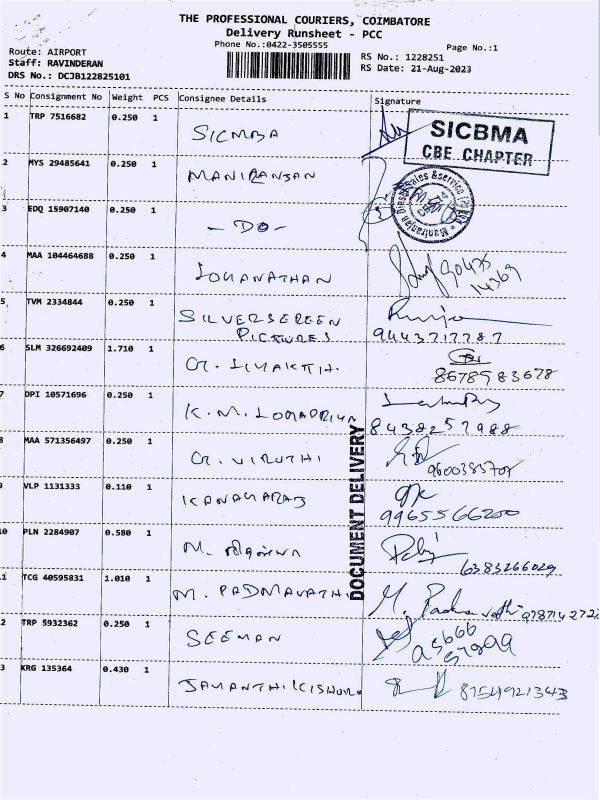 THE PROFESSIONAL COURIERS, COIMBATORE
Delivery Runsheet - PCC
Phone No.:0422-3505555
Page No.:1
Route: AIRPORT
Staff: RAVINDERAN
DRS No.: DCJB122825101
RS No.: 1228251
RS Date: 21-Aug-2023
S No Consignment No Weight PCS Consignee Details Signature
1 TRP 7516682 0.250 1 SICMBA
SICBMA
CBE CHAPTER
2 MYS 29485641 0.250 1 MANIRANJAN
3 EDQ 15907140 0.250 1 - DO -
4 MAA 104464688 0.250 1 LOGANATHAN
5 TVM 2334844 0.250 1 SILVERSEREEN
PICTURES
9443717787
6 SLM 326692409 1.710 1
8678983678
7 DPI 10571696 0.250 1 K.M.
8438257988
8 MAA 571356497 0.250 1 G. VIRUTHI
9 VLP 1131333 0.110 1 KANAGARAJ
9965566200
10 PLN 2284907 0.580 1 M.
6383266029
11 TCG 40595831 1.010 1 M. PADMAVATHI
M. Padmavathi
12 TRP 5932362 0.250 1 SEEMAN
13 KRG 135364 0.430 1 JAYANTHI KISHORE
8754921343
DOCUMENT DELIVERY